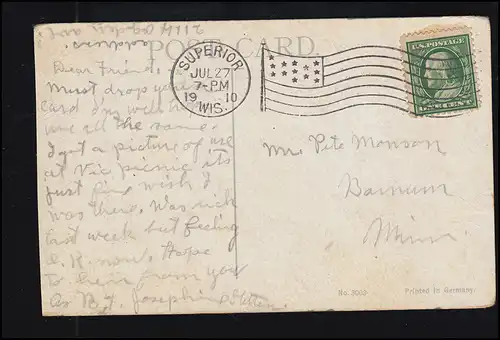 2114 Ogden ave
address
POST CARD.
SUPERIOR
JUL 27
7-PM
19 10
WIS.
U.S. POSTAGE
Dear Friend,
Must drop you a
card
me all the same.
I got a picture of use
at Vic picnic its
just fine wish I
was there. Was sick
last week but feeling
O.K. now. Hope
to hear from you
As B.4. Josephine
Mr. Pete Monson
Barnum
Minn.
No. 3063
Printed in Germany.